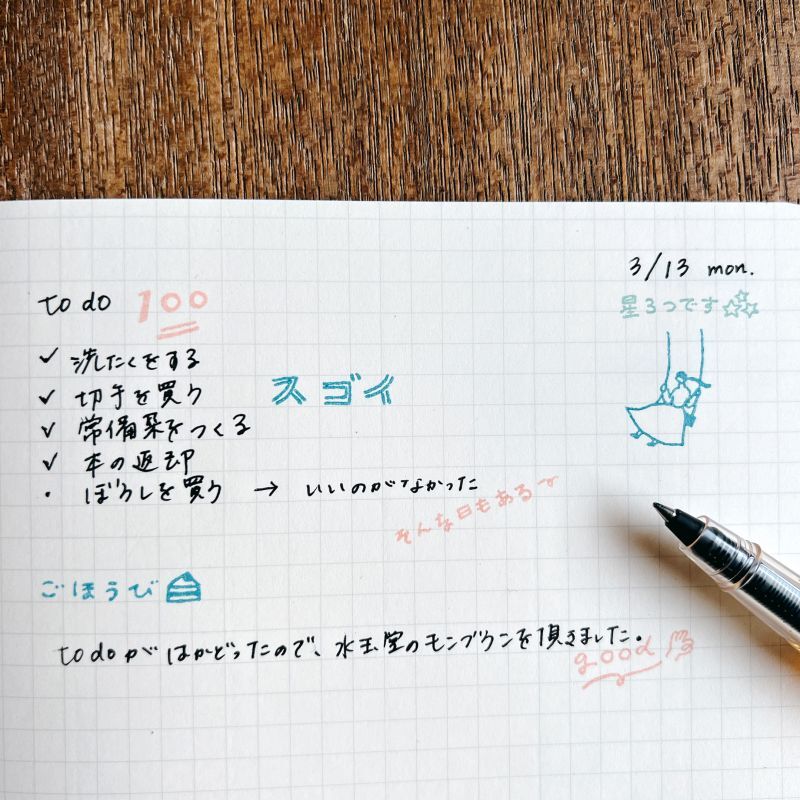 3/13 mon.
星3つです
to do 100
✓ 洗たくをする
✓ 切手を買う
スゴイ
✓ 常備菜をつくる
✓ 本の返却
・ ぼうしを買う → いいのがなかった
そんな日もある
ごほうび
to doがはかどったので、水玉堂のモンブランを頂きました。
good